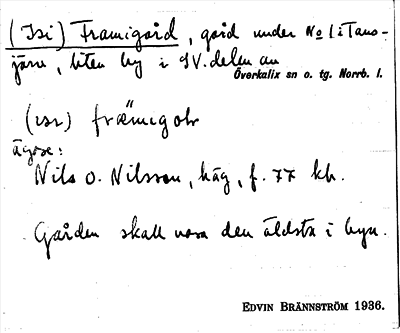 (Isi) Framigård, gård under No 1 i Tans-
järv, liten by i SV. delen av
Överkalix sn o. tg. Norrb. l.
(ısı) fræmıgoɫr
ägare:
Nils O. Nilsson, häg, f. 77 kb.
Gården skall vara den äldsta i byn.
EDVIN BRÄNNSTRÖM 1936.